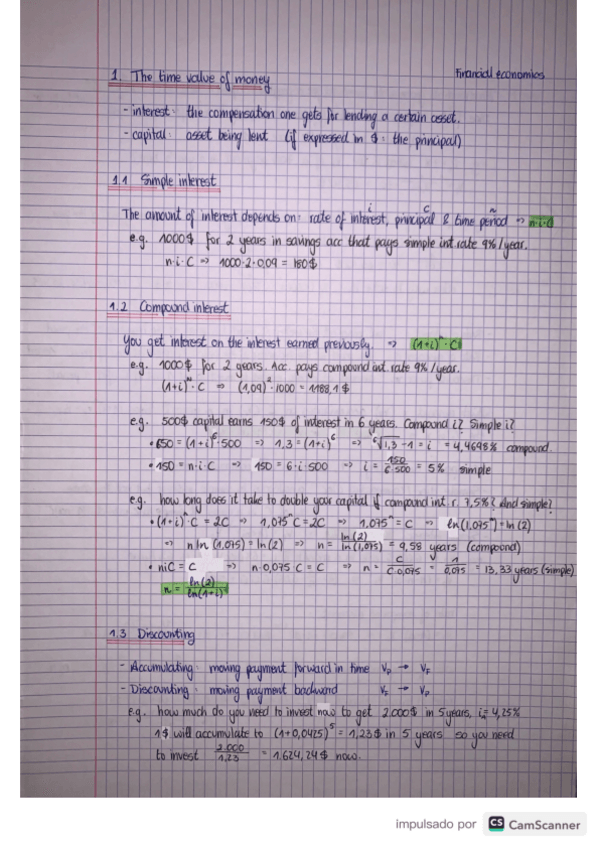 1. The time value of money
Financial economics
- interest: the compensation one gets for lending a certain asset.
- capital: asset being lent (if expressed in $: the principal)
1.1 Simple interest
i C n
The amount of interest depends on: rate of interest, principal & time period => n·i·C
e.g. 1000$ for 2 years in savings acc that pays simple int. rate 9%/year.
n·i·C => 1000·2·0,09 = 180$
1.2 Compound interest
You get interest on the interest earned previously. => (1+i)^n · C
e.g. 1000$ for 2 years. Acc. pays compound int. rate 9%/year.
(1+i)^n · C => (1,09)^2 · 1000 = 1188,1$
e.g. 500$ capital earns 150$ of interest in 6 years. Compound i? Simple i?
• 650 = (1+i)^6 · 500 => 1,3 = (1+i)^6 => ⁶√1,3 - 1 = i = 4,4698% compound.
• 150 = n·i·C => 150 = 6·i·500 => i = 150/6·500 = 5% simple
e.g. how long does it take to double your capital if compound int. r. 7,5%? And simple?
• (1+i)^n C = 2C => 1,075^n C = 2C => 1,075^n = C => ln(1,075^n) = ln(2)
=> n ln(1,075) = ln(2) => n = ln(2)/ln(1,075) = 9,58 years (compound)
• niC = C => n·0,075 C = C => n = C/C·0,075 = 1/0,075 = 13,33 years (simple)
n = ln(2)/ln(1+i)
1.3 Discounting
- Accumulating: moving payment forward in time Vp → VF
- Discounting: moving payment backward VF → Vp
e.g. how much do you need to invest now to get 2.000$ in 5 years, i= 4,25%
1$ will accumulate to (1+0,0425)^5 = 1,23$ in 5 years so you need
to invest 2.000/1,23 = 1.624,24$ now.
impulsado por CS CamScanner